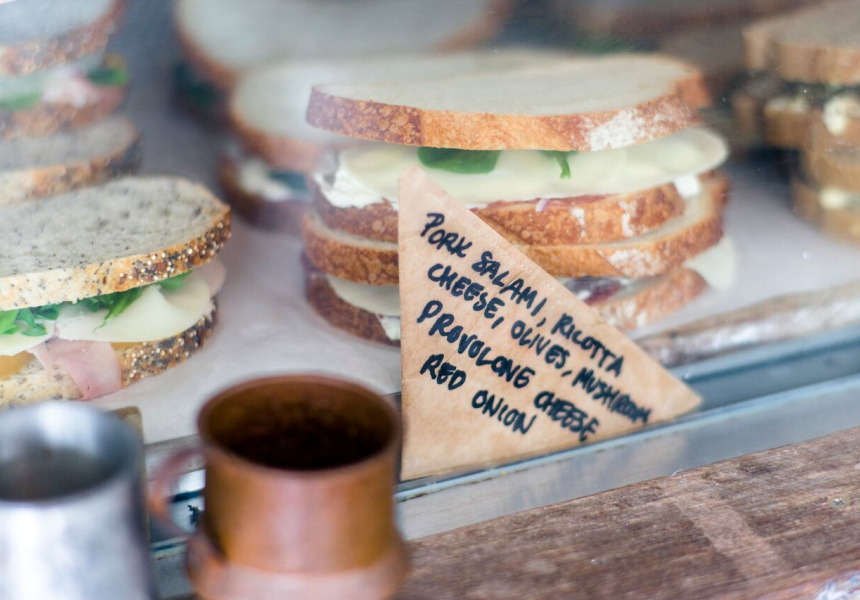 PORK SALAMI, RICOTTA
CHEESE, OLIVES, MUSHROOM
PROVOLONE CHEESE
RED ONION